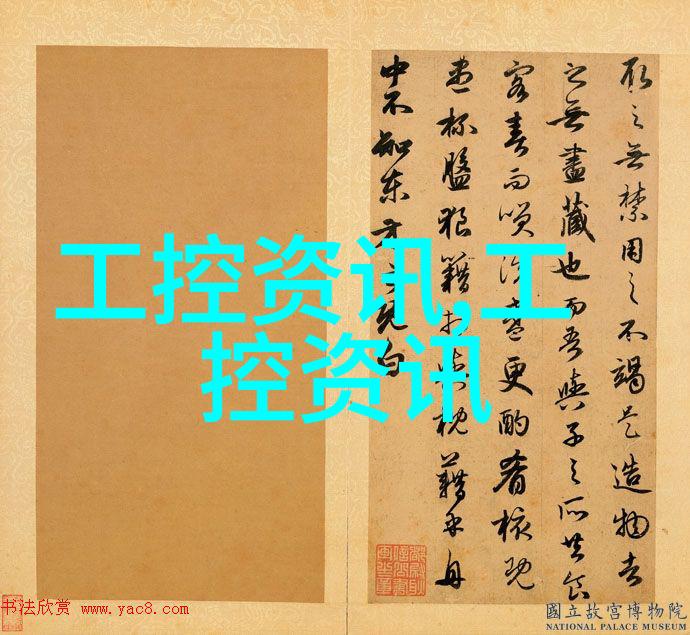 取之無禁用之不竭是造物者
之無盡藏也而吾與子之所共食
客喜而笑洗盞更酌肴核既
盡杯盤狼籍相與枕藉乎舟
中不知東方之既白
工控资讯,工
控资讯
书法欣赏 www.yac8.com
國立故宮博物院
NATIONAL PALACE MUSEUM